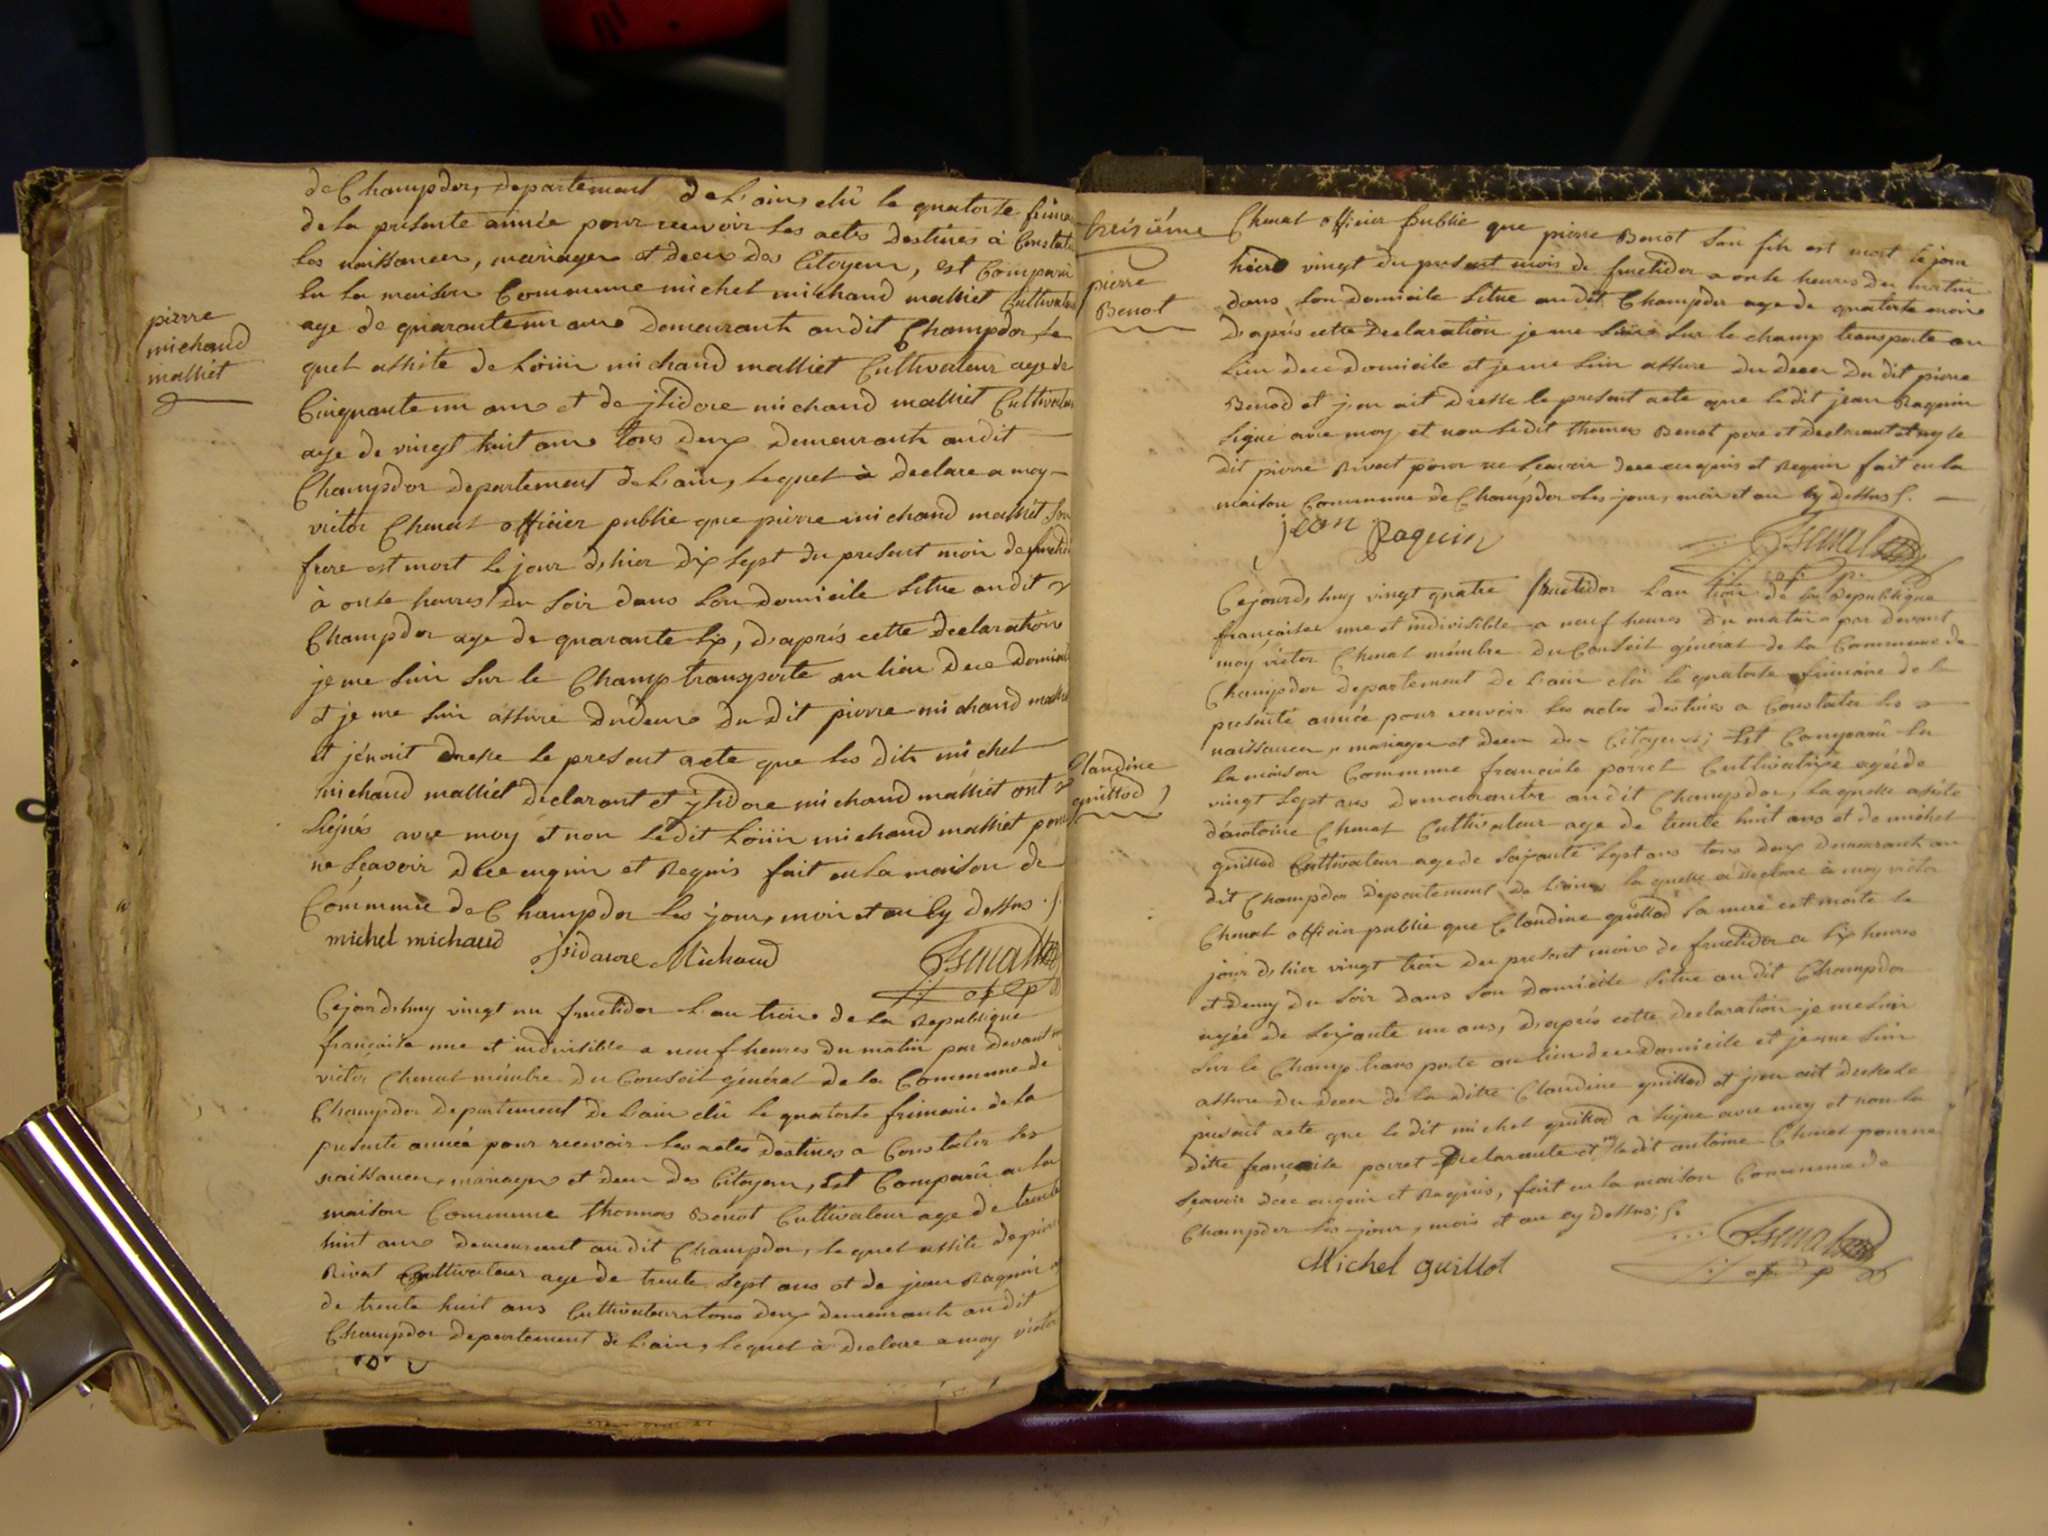 de Champdor, departement de L'ain, elû le quatorse frima
de la presente année pour recevoir les actes destinés à Constate
les naissances, mariages et deces des Citoyens, est Comparu
en la maison Commune michel michaud malliet Cultivateur
age de quarante un ans Demeurant audit Champdor, le
quel assisté de Loüis michaud malliet Cultivateur age de
Cinquante un ans et de jsidore michaud malliet Cultivateu
age de vingt huit ans tous deux demeurants audit
Champdor departement de L'ain, lequel à declare a moy
victor Chenat officier public que pierre michaud malliet son
frere est mort le jour d'hier dix sept du present mois de fructid
à onse heures du soir dans son Domicile situe audit
Champdor age de quarante six, d'aprés cette declaration
je me suis sur le Champ transporte au lieu dece domicil
et je me suis assure du deces du dit pierre michaud mallie
et j'en ait dresse le present acte que les dits michel
michaud malliet declarant et jsidore michaud malliet ont
signés avec moy et non le dit Loüis michaud malliet pour
ne sçavoir dece enquis et Requis fait en la maison de
Commune de Champdor les jour, mois et an cy dessus
michel michaud Isidaure Michaud
pierre
michaud
malliet
Cejourd'huy vingt un fructidor L'an trois de la Republique
françoise une et indivisible a neuf heures du matin par devant
victor Chenat membre du Conseil général de la Commune de
Champdor departement de L'ain elû le quatorse frimaire de la
presente année pour recevoir les actes destinés a Constater les
naissances, mariages et deces des Citoyens, est Comparû en la
maison Commune thomas Benot Cultivateur age de trente
huit ans demeurant audit Champdor, lequel assité de pierre
Rivat Cultivateur age de trente sept ans et de jean Raquin
de trente huit ans Cultivateurs tous deux demeurants audit
Champdor departement de L'ain, lequel à declare a moy victor
treisiéme
pierre
Benot
Chenat officier public que pierre Benot son fils est mort le jour
hierd vingt du present mois de fructidor a onse heures du matin
dans son domicile situe audit Champdor age de quatorse mois
D'aprés cette Declaration je me suis sur le champ transporte au
Lieu dece domicile et je me suis assure du deces du dit pierre
Benod et j'en ait dresse le present acte que le dit jean Raquin
signé avec moy et non le dit thomas Benot pere et declarant et ny le
dit pierre Rivat pour ne sçavoir dece enquis et Requis fait en la
maison Commune de Champdor les jour, mois et an cy dessus
jean Raquin
Cejourd'huy vingt quatre fructidor L'an trois de la Republique
françoise une et indivisible a neuf heures du matin par devant
moy victor Chenat membre du Conseil général de la Commune de
Champdor departement de L'ain elû le quatorse frimaire de la
presente année pour recevoir les actes destinés a Constater les
naissances, mariages et deces des Citoyens; Est Comparuû en
la maison Commune françoise porret Cultivatrice agée de
vingt sept ans demeurante audit Champdor, laquelle assisté
d'antoine Chenat Cultivateur age de trente huit ans et de michel
guillod Cultivateur age de soixante sept ans tous deux demeurants au
dit Champdor departement de L'ain, la quelle a declare à moy victor
Chenat officier public que Claudine guillod sa mere est morte le
jour d'hier vingt trois du present mois de fructidor a six heures
et demy du soir dans son domicile situe au dit Champdor
agée de soixante un ans, d'aprés cette declaration je me suis
sur le Champ transporte au lieu dece domicile et je me suis
assure du deces de la ditte Claudine guillod et j'en ait dresse le
present acte que le dit michel guillod a signe avec moy et non la
ditte françoise porret Declarante et ny ledit antoine Chenat pour ne
sçavoir dece enquis et Requis, fait en la maison Commune de
Champdor les jour, mois et an cy dessus;
Michel guillot
Claudine
guillod